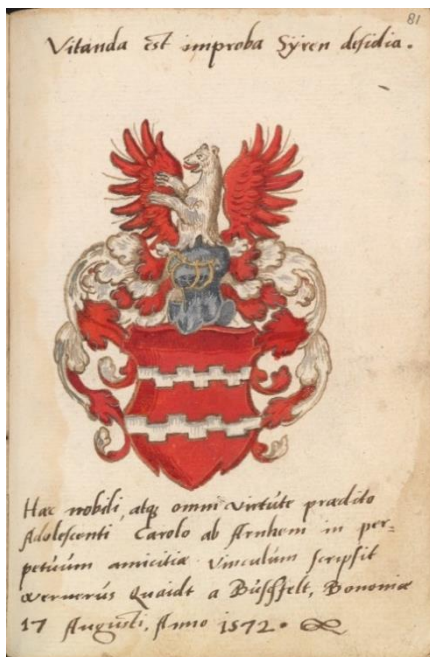 81
Vitanda est improba Syren desidia.
Haec nobili, atq; omni virtute praedito
Adolescenti Carolo ab Arnhem in per=
petuum amicitiae vinculum scripsit
Wernerus Quaidt a Buschfelt, Bononiae
17 Augusti, Anno 1572.